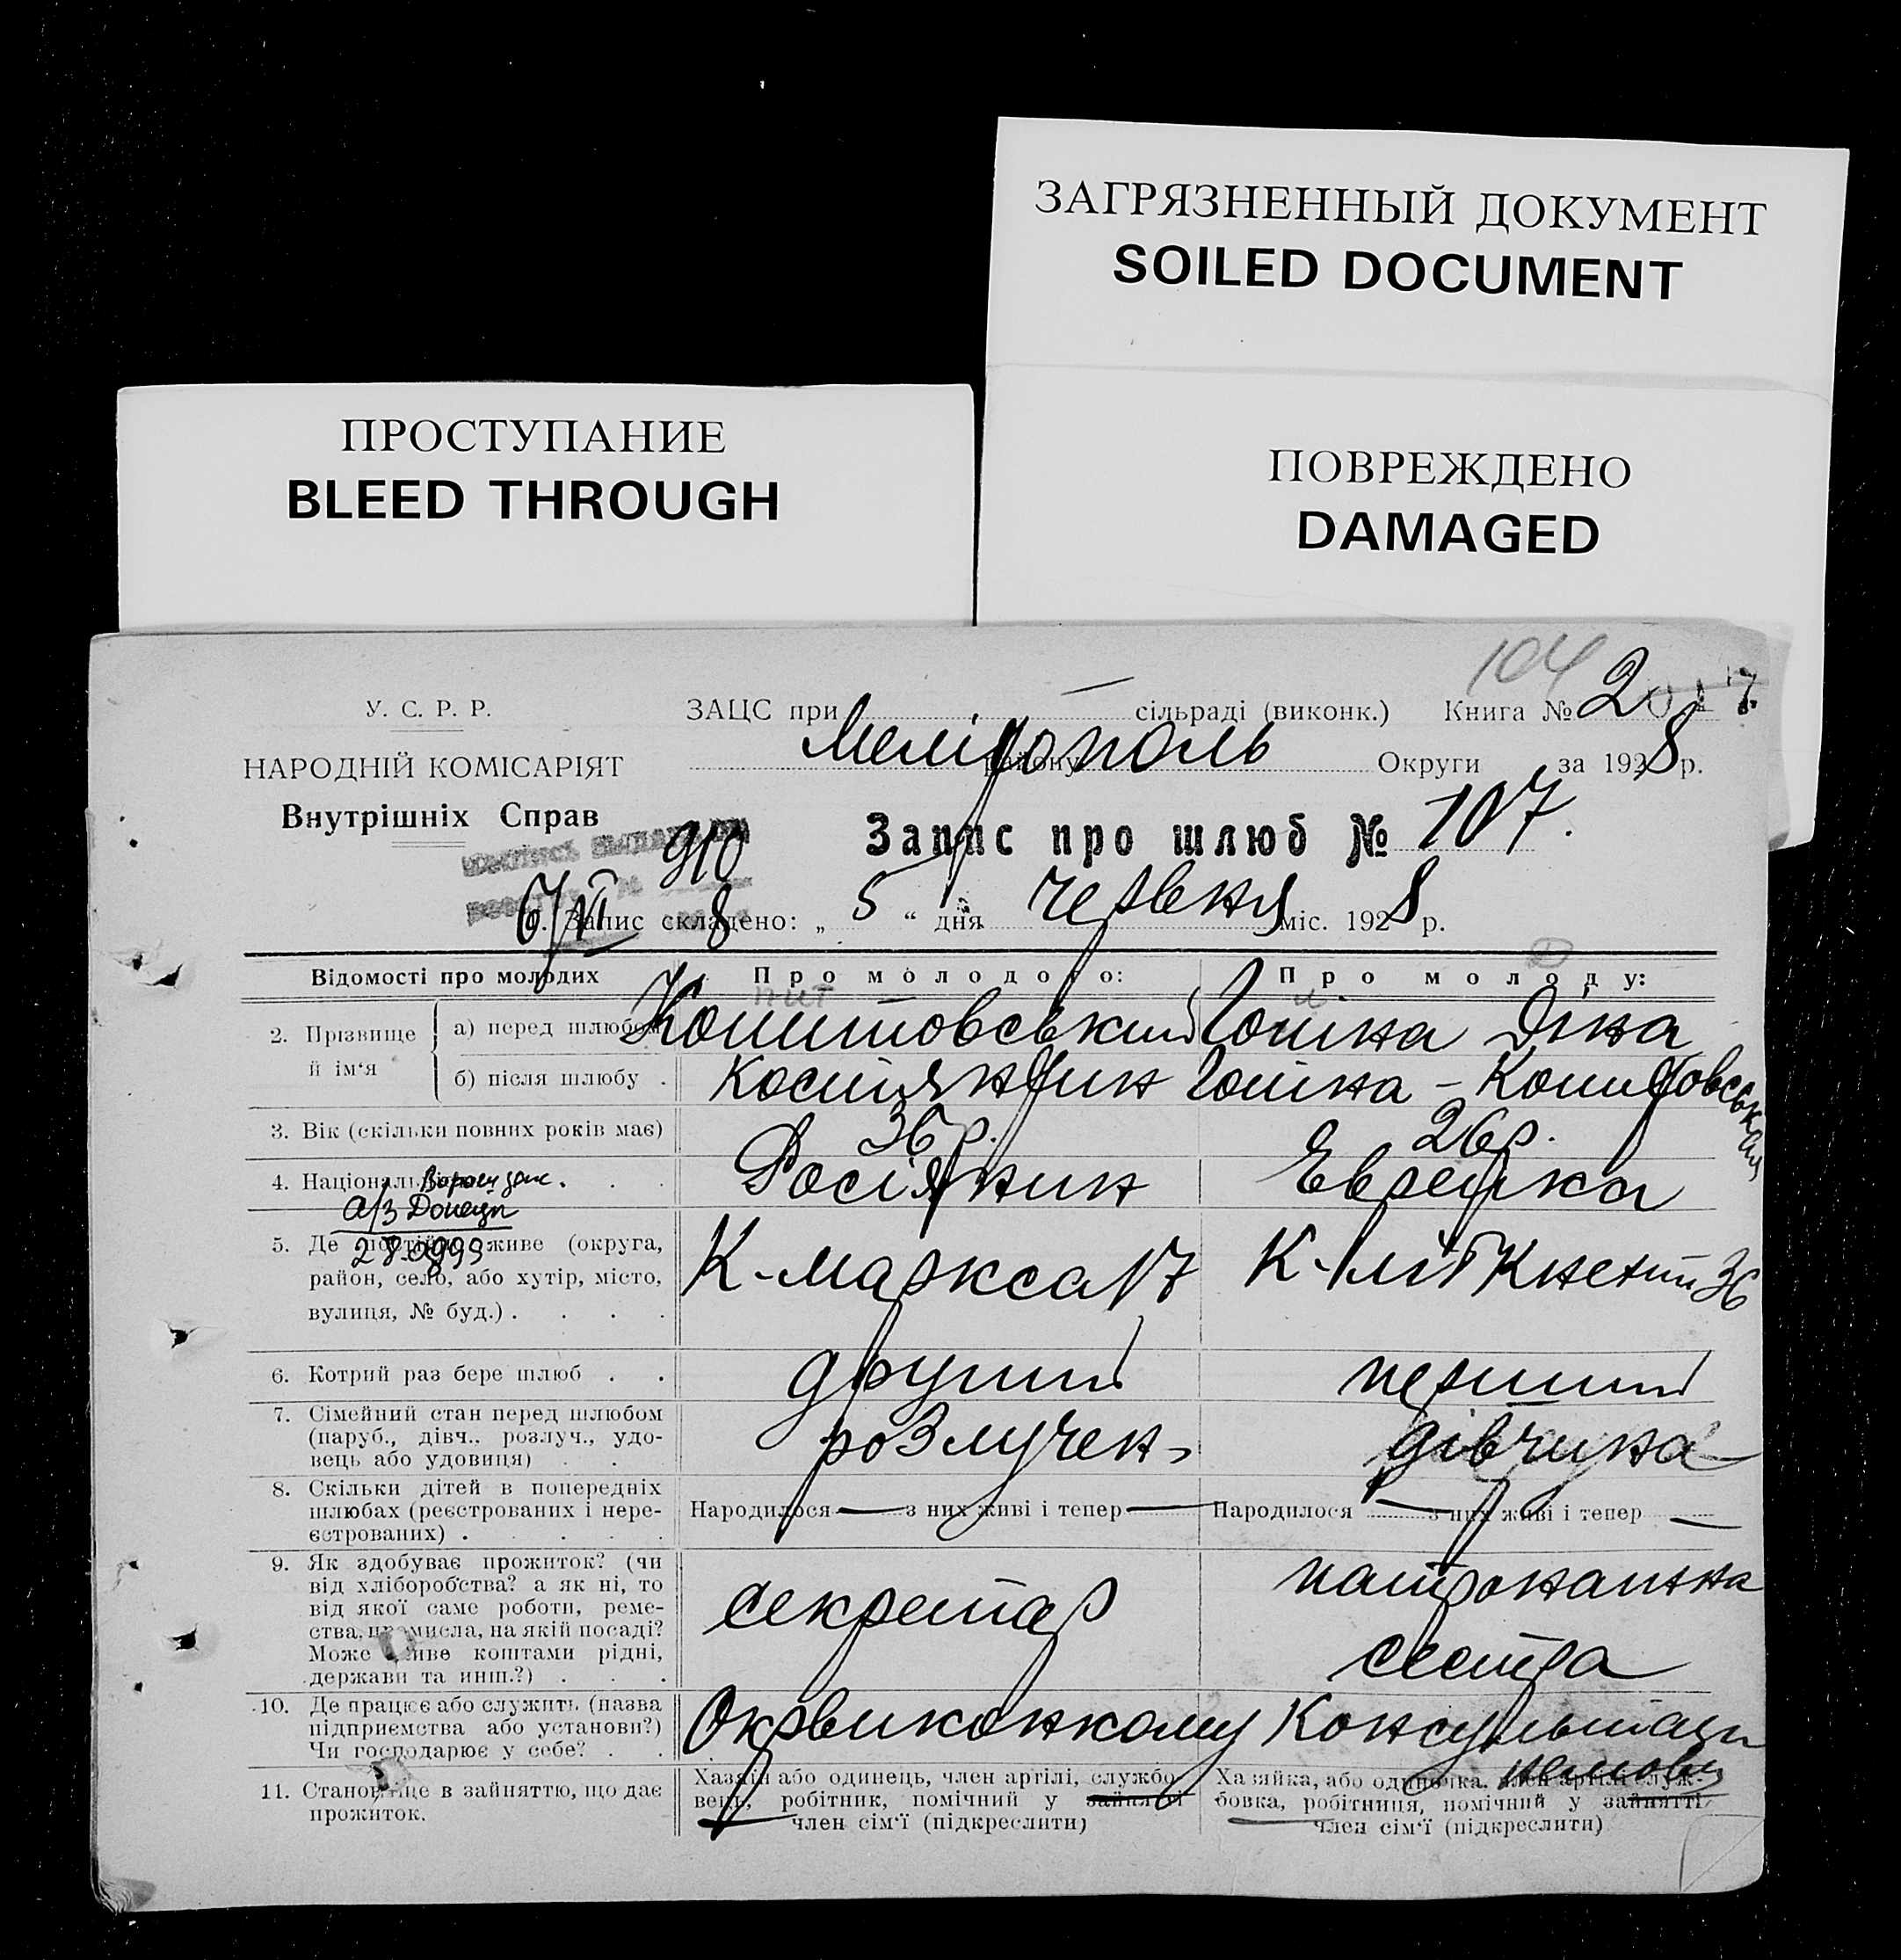 ЗАГРЯЗНЕННЫЙ ДОКУМЕНТ
SOILED DOCUMENT
ПРОСТУПАНИЕ
BLEED THROUGH
ПОВРЕЖДЕНО
DAMAGED
104
У. С. Р. Р.
ЗАЦС при — сільраді (виконк.) Книга № 2
НАРОДНІЙ КОМІСАРІЯТ
Мелітополь району Округи за 1928 р.
Внутрішніх Справ
910
Запис про шлюб № 107.
6/VI 8
1. Запис складено: „ 5 “ дня червня міс. 1928 р.
Відомості про молодих
Про молодого:
Про молоду:
2. Прізвище й ім‘я
а) перед шлюбом
Готіна Діна
б) після шлюбу .
Костянтин
3. Вік (скільки повних років має)
36 р.
26 р.
4. Національність . .
Росіянин
Еврейка
а/з Донецк
5. Де постійно живе (округа,
район, село, або хутір, місто,
вулиця, № буд.) . . . .
К-маркса 17
К-Лібкнехта 36
6. Котрий раз бере шлюб . .
другий
перший
7. Сімейний стан перед шлюбом
(паруб., дівч., розлуч., удо-
вець або удовиця) . .
розлучен
дівчина
8. Скільки дітей в попередніх
шлюбах (реєстрованих і нере-
єстрованих) . . . . .
Народилося — з них живі і тепер —
Народилося — з них живі і тепер —
9. Як здобуває прожиток? (чи
від хліборобства? а як ні, то
від якої саме роботи, реме-
ства, промисла, на якій посаді?
Може живе коштами рідні,
держави та инш.?) . . .
секретар
патронажна
сестра
10. Де працює або служить (назва
підприємства або установи?)
Чи господарює у себе? . .
Окрвиконкому
Консультації
11. Становище в зайняттю, що дає
прожиток.
Хазяїн або одинець, член артілі, службо-
вець, робітник, помічний у зайнятті
член сім‘ї (підкреслити)
Хазяйка, або одиночка, член артілі служ-
бовка, робітниця, помічний у зайнятті
член сім‘ї (підкреслити)